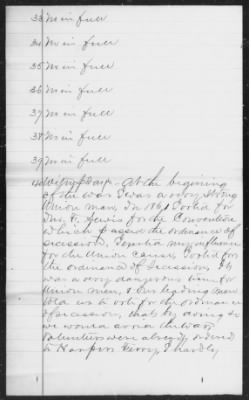 33 No in full
34 No in full
35 No in full
36 No in full
37 No in full
38 No in full
39 No in full
40 Says - At the begining
of the war I was a very strong
Union man, In 1861 Voted for
Jno. F. Lewis for the Convention
which passed the ordinance of
secession, I my influence
for the Union cause, Voted for
the ordinance of Secession. It
was a very dangerous time for
Union men, & Our leading men
told us to vote for the ordinance
of secession, that by doing so
we would avoid the war,
Volunteers were already ordered
to Harpers Ferry, I hardly